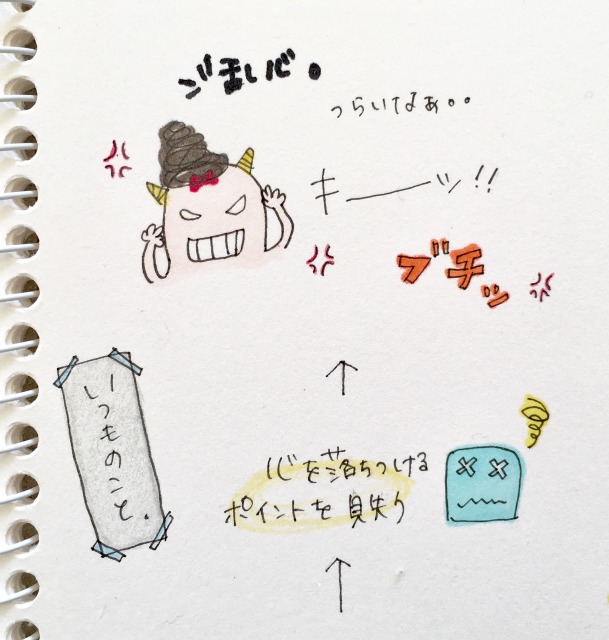 つらいなぁ。。
キーーッ!!
ブチッ
いつものこと.
心を落ちつける
ポイントを見失う